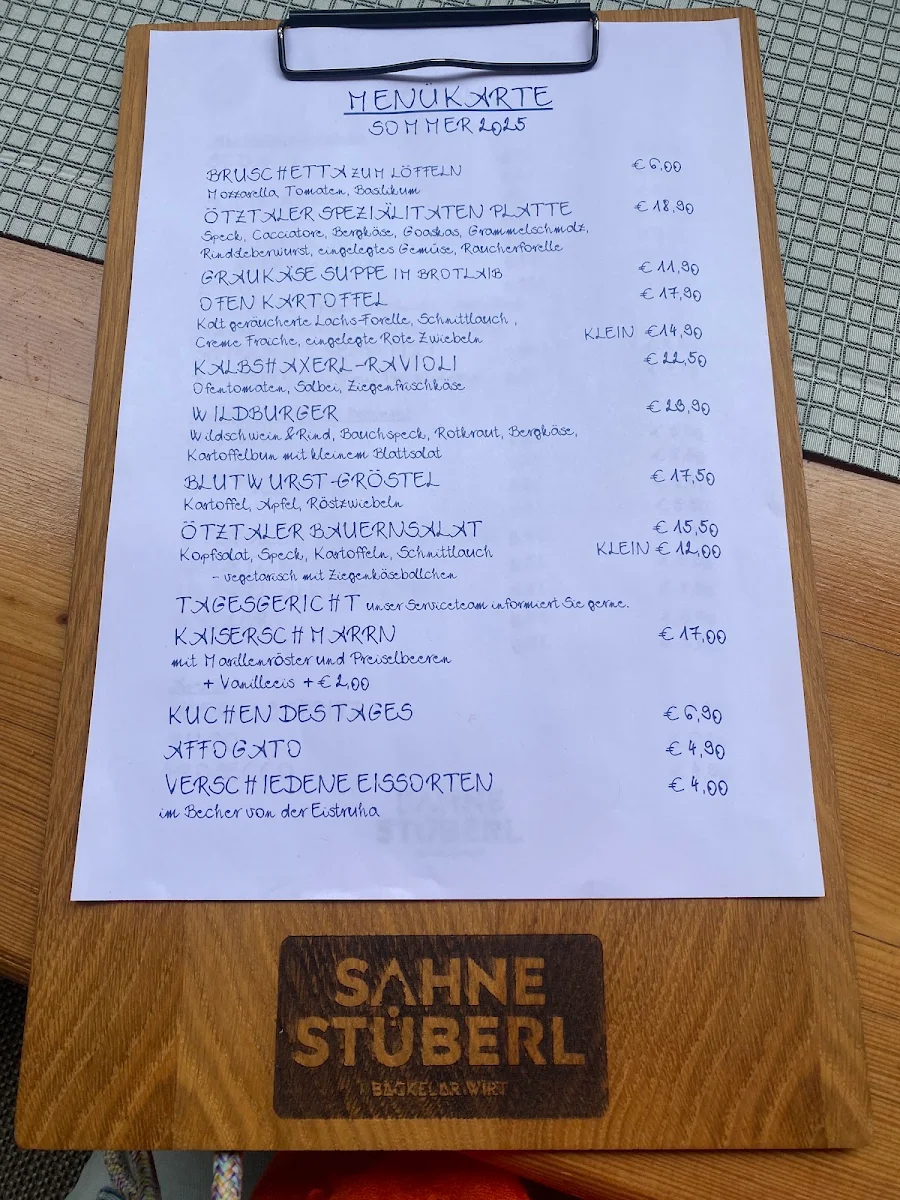 MENÜKARTE
SOMMER 2025
BRUSCHETTA ZUM LÖFFELN € 6,00
Mozzarella, Tomaten, Basilikum
ÖTZTALER SPEZIÄLITATEN PLATTE € 18,90
Speck, Cacciatore, Bergkäse, Goaskas, Grammelschmalz,
Rindsleberwurst, eingelegtes Gemüse, Räucherforelle
GRAUKÄSE SUPPE IM BROTLAIB € 11,90
OFEN KARTOFFEL € 17,90
Kalt geräucherte Lachs-Forelle, Schnittlauch,
Creme Fraiche, eingelegte Rote Zwiebeln KLEIN € 14,90
KALBSHAXERL-RAVIOLI € 22,50
Ofentomaten, Salbei, Ziegenfrischkäse
WILDBURGER € 23,90
Wildschwein & Rind, Bauchspeck, Rotkraut, Bergkäse,
Kartoffelbun mit kleinem Blattsalat
BLUTWURST-GRÖSTEL € 17,50
Kartoffel, Apfel, Röstzwiebeln
ÖTZTALER BAUERNSALAT € 15,50
Kopfsalat, Speck, Kartoffeln, Schnittlauch KLEIN € 12,00
- vegetarisch mit Ziegenkäsebällchen
TAGESGERICHT unser Serviceteam informiert Sie gerne.
KAISERSCHMARRN € 17,00
mit Marillenröster und Preiselbeeren
+ Vanilleeis + € 2,00
KUCHEN DES TAGES € 6,90
AFFOGATO € 4,90
VERSCHIEDENE EISSORTEN € 4,00
im Becher von der Eistruha
SAHNE
STÜBERL
BACKELAR WIRT